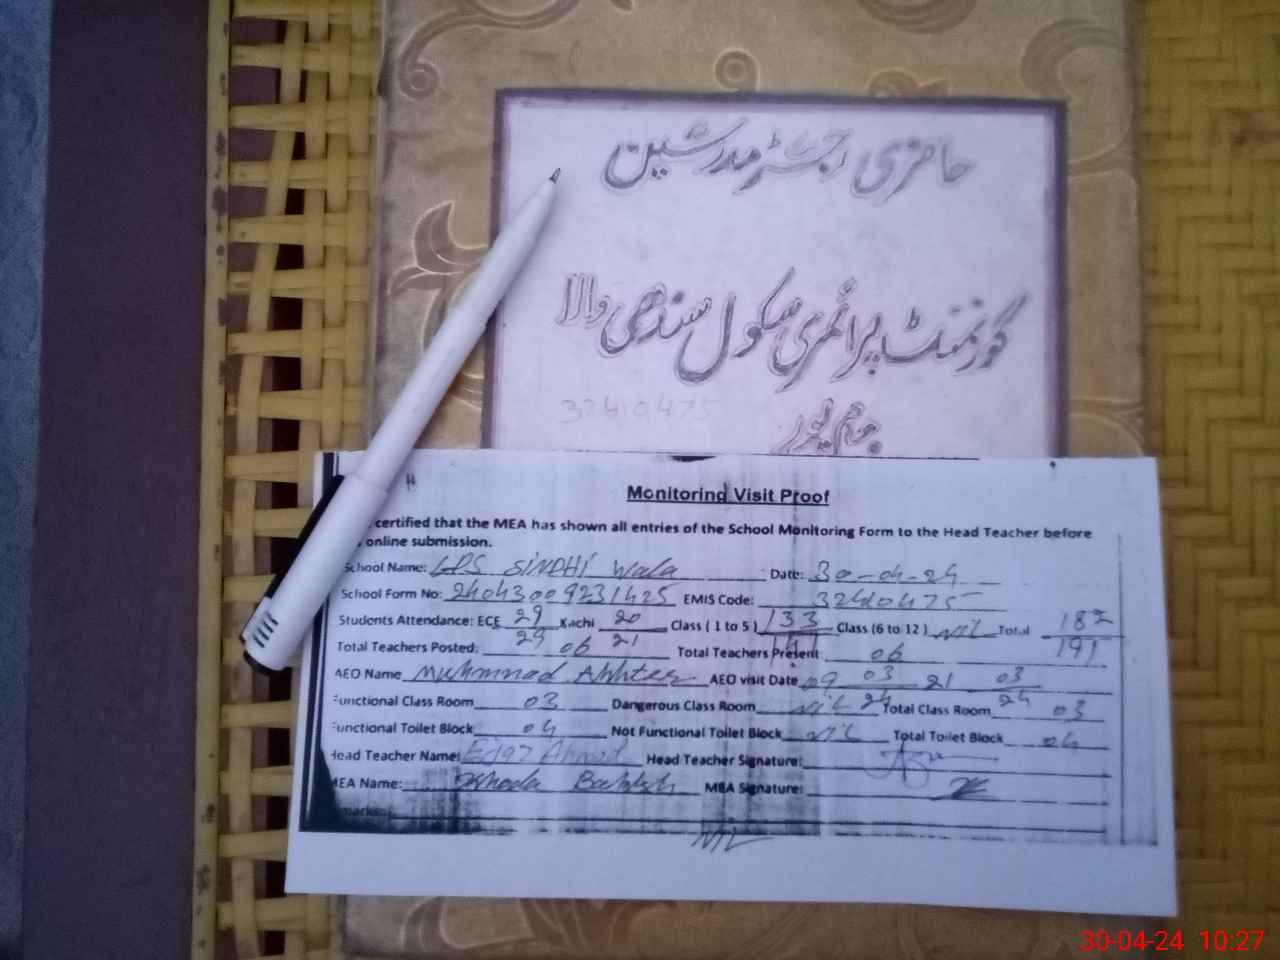 حاضری رجسٹر مدرسین
گورنمنٹ پرائمری سکول سندھی والا
32410475
جام پور
Monitoring Visit Proof
certified that the MEA has shown all entries of the School Monitoring Form to the Head Teacher before
online submission.
School Name: GPS SINDHI Wala Date: 30-04-24
School Form No: 240430009231425 EMIS Code: 32410475
Students Attendance: ECE 29/29 Kachi 20/21 Class ( 1 to 5 ) 133/141 Class (6 to 12 ) NIL Total 182/191
Total Teachers Posted: 06 Total Teachers Present: 06
AEO Name Muhmmad Akhter AEO visit Date 09 03 21 03
Functional Class Room 03 Dangerous Class Room NIL 24 Total Class Room 24 03
Functional Toilet Block 04 Not Functional Toilet Block NIL Total Toilet Block 04
Head Teacher Name: Ejaz Ahmad Head Teacher Signature:
MEA Name: Bakhsh MEA Signature:
NIL
30-04-24 10:27